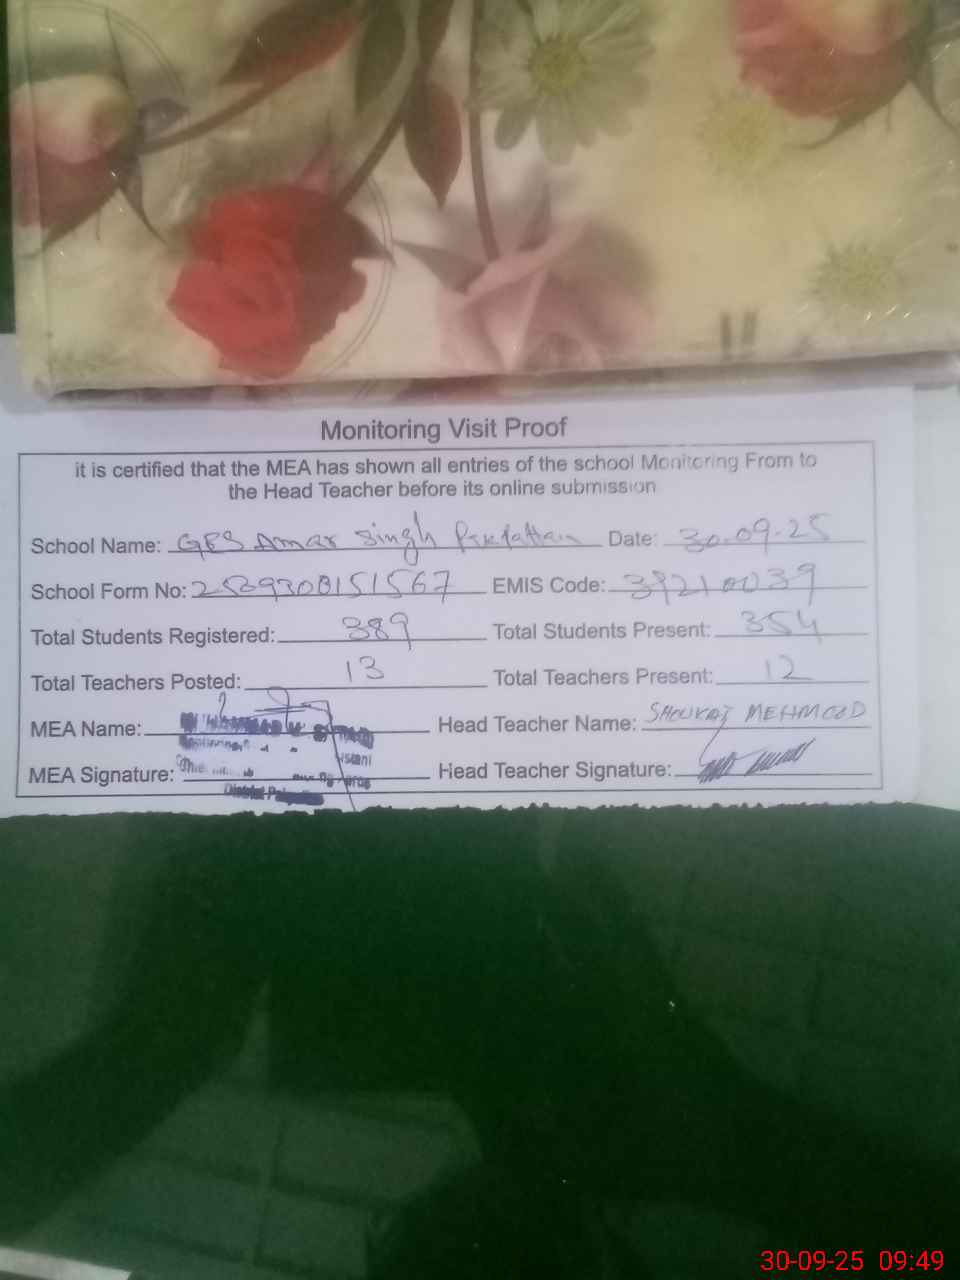 Monitoring Visit Proof
it is certified that the MEA has shown all entries of the school Monitoring From to
the Head Teacher before its online submission
School Name: GES Amar Singh Date: 30.09.25
School Form No: 2509300151567 EMIS Code: 39210039
Total Students Registered: 389 Total Students Present: 354
Total Teachers Posted: 13 Total Teachers Present: 12
MEA Name: Head Teacher Name: SHOUKAT MEHMOOD
MEA Signature: Head Teacher Signature:
District
30-09-25 09:49